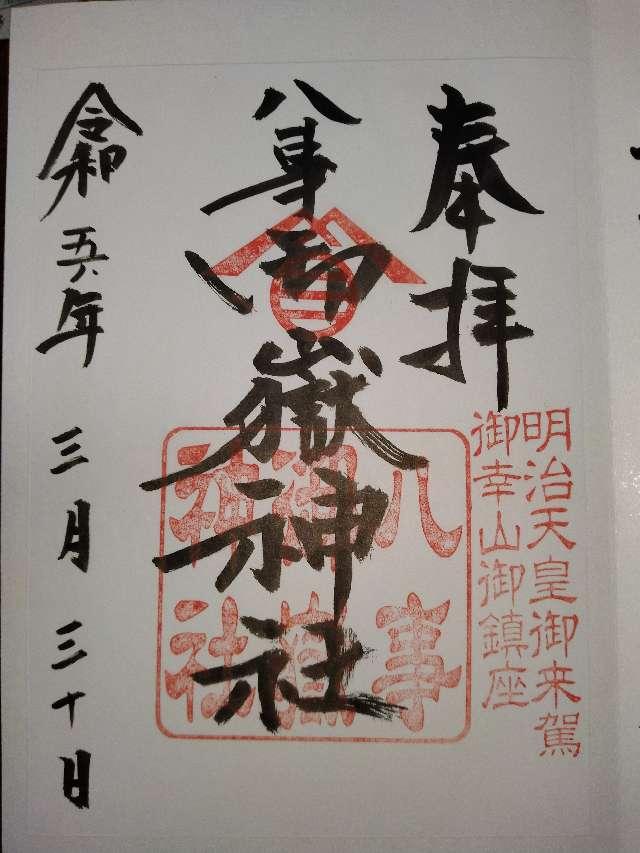 奉拝
明治天皇御来駕
御幸山御鎮座
八事御嶽神社
八事
御嶽
神社
令和五年三月三十日